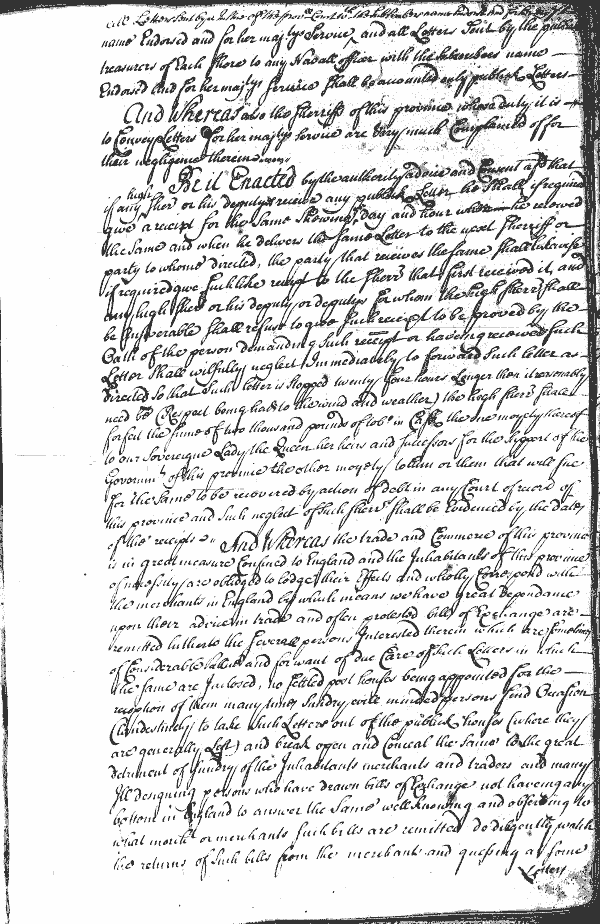 all Letters sent by
name Endorsed and for her maj:tys Service, and all Letters Sent by the publick
treasurers of Each Shore to any Navall officer with the Subscribers name
Endorsed and for her maj:tys Service Shall be accounted only publick Letters
And Whereas also the Sherriffs of this province whose duty it is
to Convey Letters for her maj:tys Service are very much Complained of for
their negligence therein
Be it Enacted by the authority advice and Consent afs:d that
if any high Sher: or his deputys receive any publick Letter he Shall if required
give a receipt for the Same Shewing day and hour when he receved
the Same and when he delivers the Same Letter to the next Sherriff or
party to whome directed, the party that receives the Same Shall likewise
if required give Such like receipt to the Sherr: that first received it, and
any high Sher: or his deputy or deputys for whom the high Sherr: Shall
be answerable Shall refuse to give Such receipt to be proved by the
Oath of the person demanding Such receipt or having received Such
Letter Shall wilfully neglect Immediately to forward Such letter as
directed so that Such letter is Stopped twenty four hours Longer then it reasonably
need be (Respect being had to the wind and weather) the high Sherr: Shall
forfeit the Sume of two thousand pounds of tob:o in Cask the one moyety thereof
to our Sovereigne Lady the Queen her heirs and Successors for the Support of the
Governm:t of this province the other moyety to him or them that will Sue
for the Same to be recovered by action of debt in any Court of record of
this province and Such neglect of Such Sherr: Shall be Evidenced by the dates
of the receipts And Whereas the trade and Commerce of this province
is in great measure Confined to England and the Inhabitants of this province
of necessity are obliged to lodge their Effects and wholly Correspond with
the merchants in England by which means we have great dependance
upon their advice in trade and often protested bills of Exchange are
remitted hither to the Severall persons Interested therein which are Sometimes
of Considerable value and for want of due Care of Such Letters in which
the Same are Inclosed, no Settled post houses being appointed for the
reception of them many times Sundry evill minded persons find Occasion
Clandestinely to take Such Letters out of the publick houses (where they
are generally Left) and break open and Conceal the Same to the great
detriment of Sundry of the Inhabitants merchants and traders and many
Ill designing persons who have drawn bills of Exchange not having any
bottom in England to answer the Same well knowing and observing to
what merch:t or merchants Such bills are remitted do diligently watch
the returns of Such bills from the merchants and guessing at Some
Letters